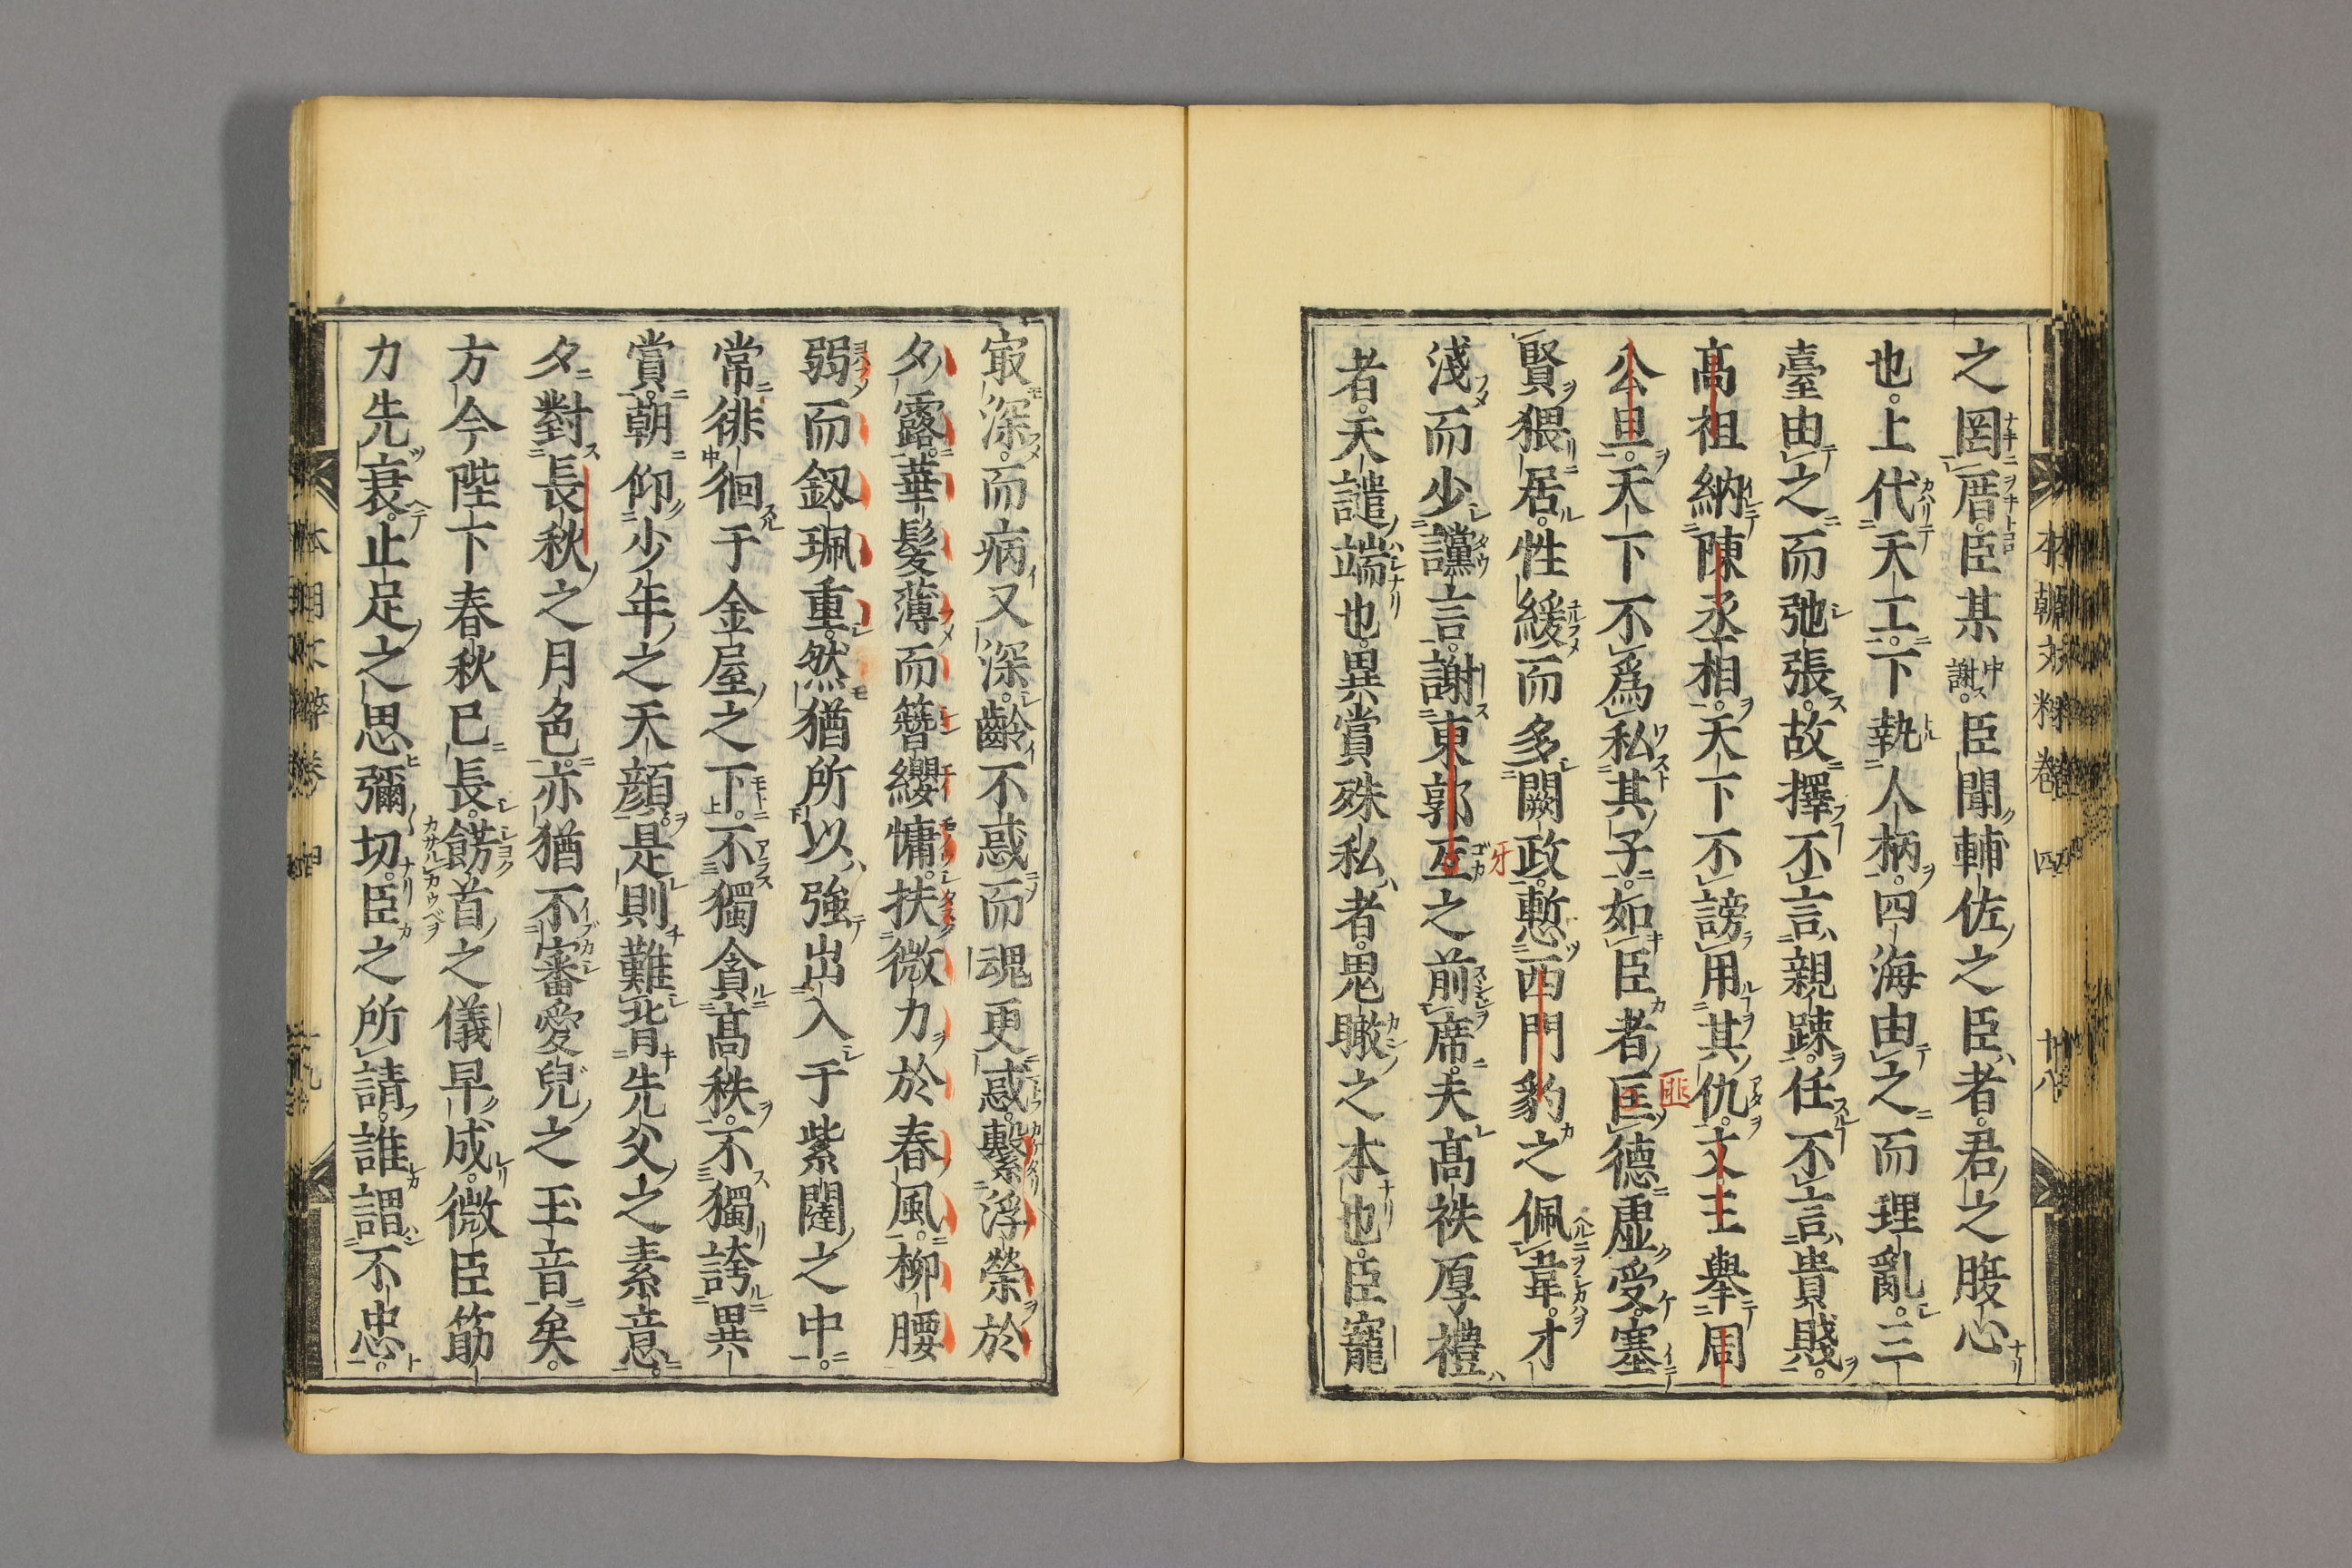 之罔厝臣某中謝。臣聞輔佐之臣者。君之腹心
也。上代天工。下執人柄。四海由之而理亂。三
臺由之而弛張。故擇不言親踈。任不言貴賤。
髙祖納陳丞相。天下不謗用其仇。文王舉周
公旦。天下不爲私其子。如臣者匡德虚受。塞
賢猥居。性緩而多闕政。慙西門豹之佩韋。才
淺而少讜言。謝東郭互之前席。夫髙秩厚禮
者。天譴端也。異賞殊私者。鬼瞰之本也。臣寵
㝡深。而病又深。齡不惑而魂更惑。繫浮榮於
夕露。華髮薄而簪纓慵。扶微力於春風。柳腰
弱而釼珮重。然猶所以強出入于紫闥之中。
常徘徊于金屋之下。不獨貪髙秩。不獨誇異
賞。朝仰少年之天顔。是則難背先父之素意。
夕對長秋之月色。亦猶不審愛兒之玉音矣。
方今陛下春秋已長。餝首之儀早成。微臣筋
力先衰。止足之思彌切。臣之所請。誰謂不忠。
本朝文粹卷四 廿八
匪
牙